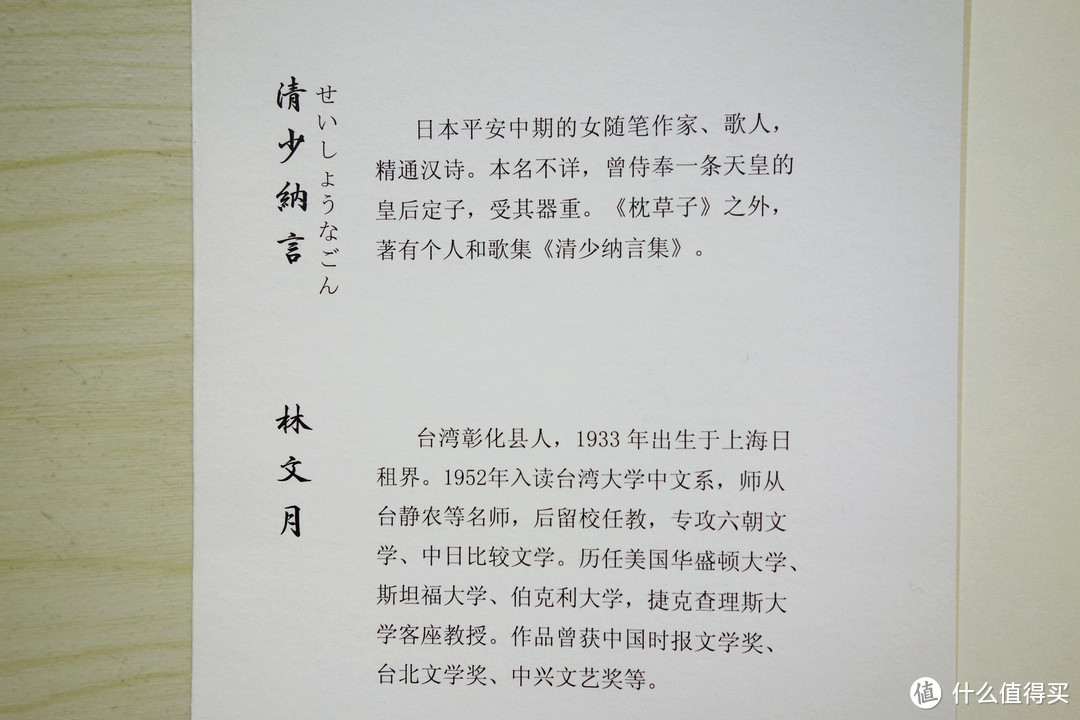 清少納言
せいしょうなごん
日本平安中期的女随笔作家、歌人，
精通汉诗。本名不详，曾侍奉一条天皇的
皇后定子，受其器重。《枕草子》之外，
著有个人和歌集《清少纳言集》。
林文月
台湾彰化县人，1933年出生于上海日
租界。1952年入读台湾大学中文系，师从
台静农等名师，后留校任教，专攻六朝文
学、中日比较文学。历任美国华盛顿大学、
斯坦福大学、伯克利大学，捷克查理斯大
学客座教授。作品曾获中国时报文学奖、
台北文学奖、中兴文艺奖等。
值 什么值得买